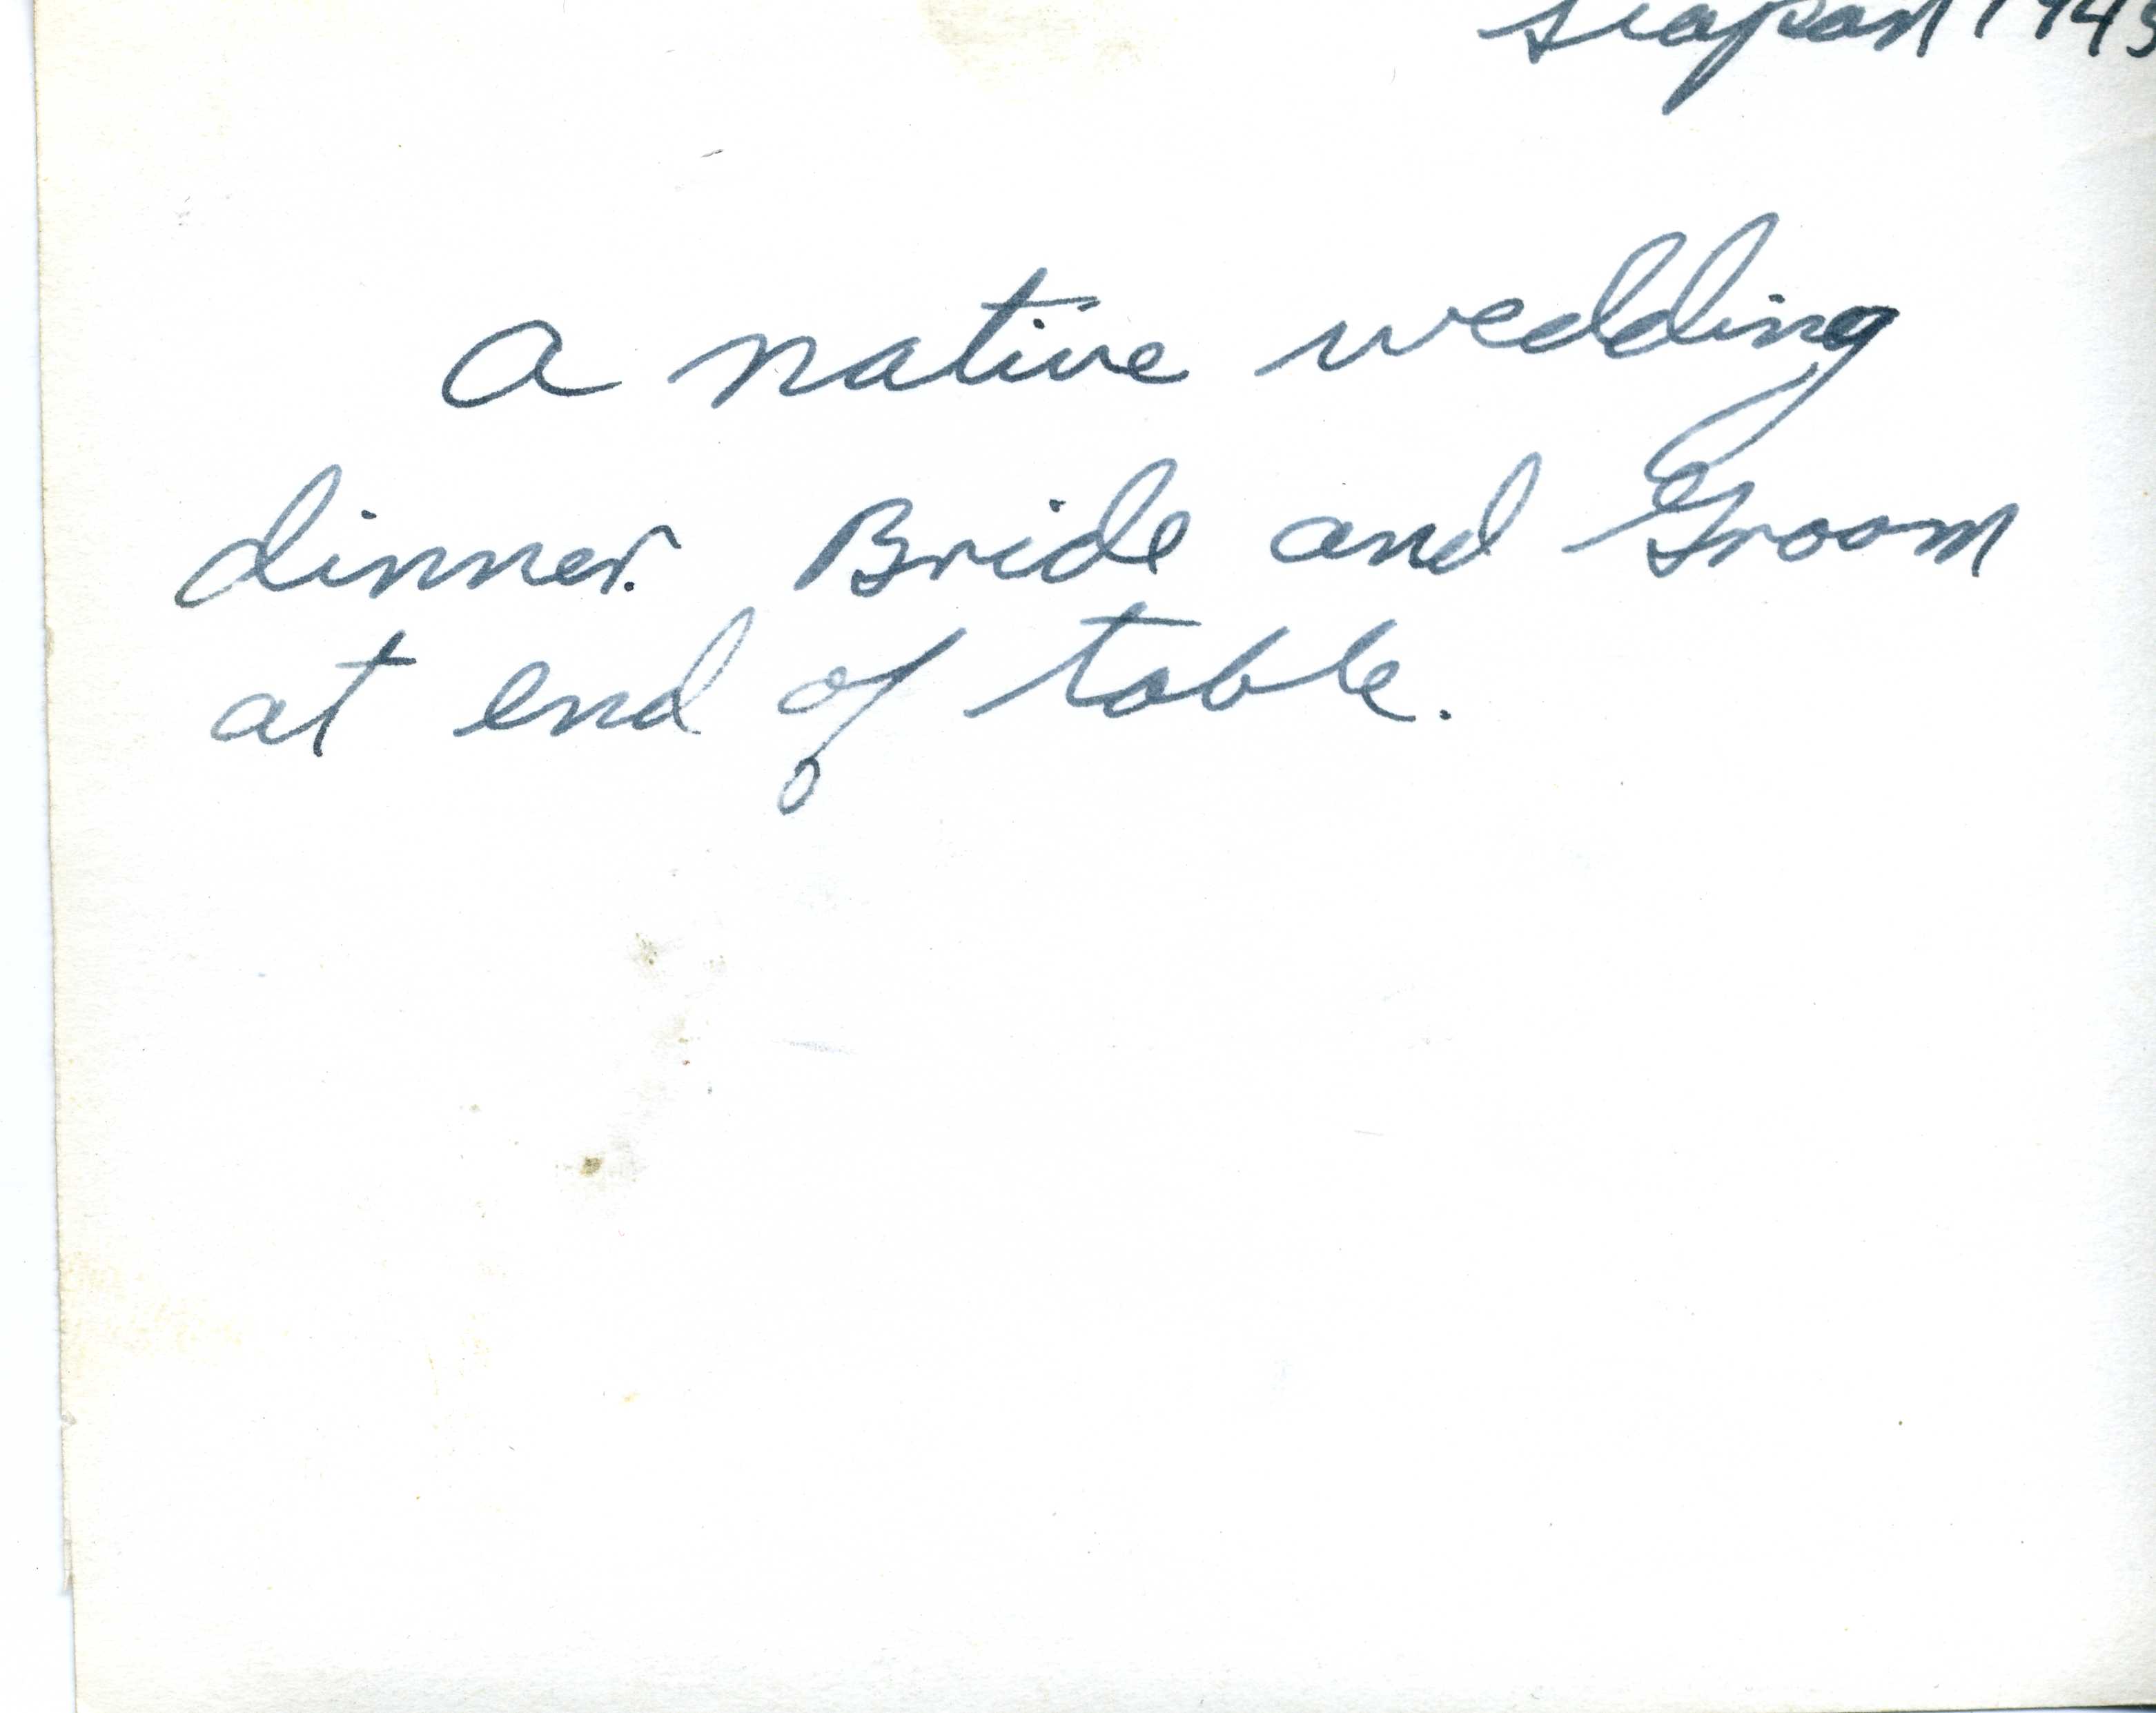 Siapan 1945
A native wedding
dinner. Bride and Groom
at end of table.